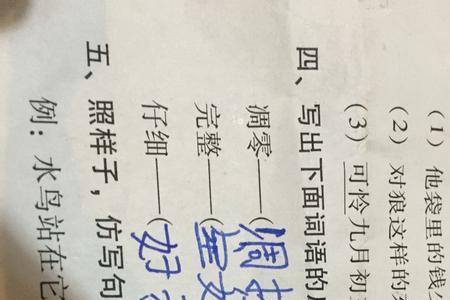 (1) 他袋里的钱
(2) 对狼这样的
(3) 可怜九月初
四、写出下面词语的
凋零——(凋
完整——(
仔细——(好
五、照样子，仿写句
例：水鸟站在它